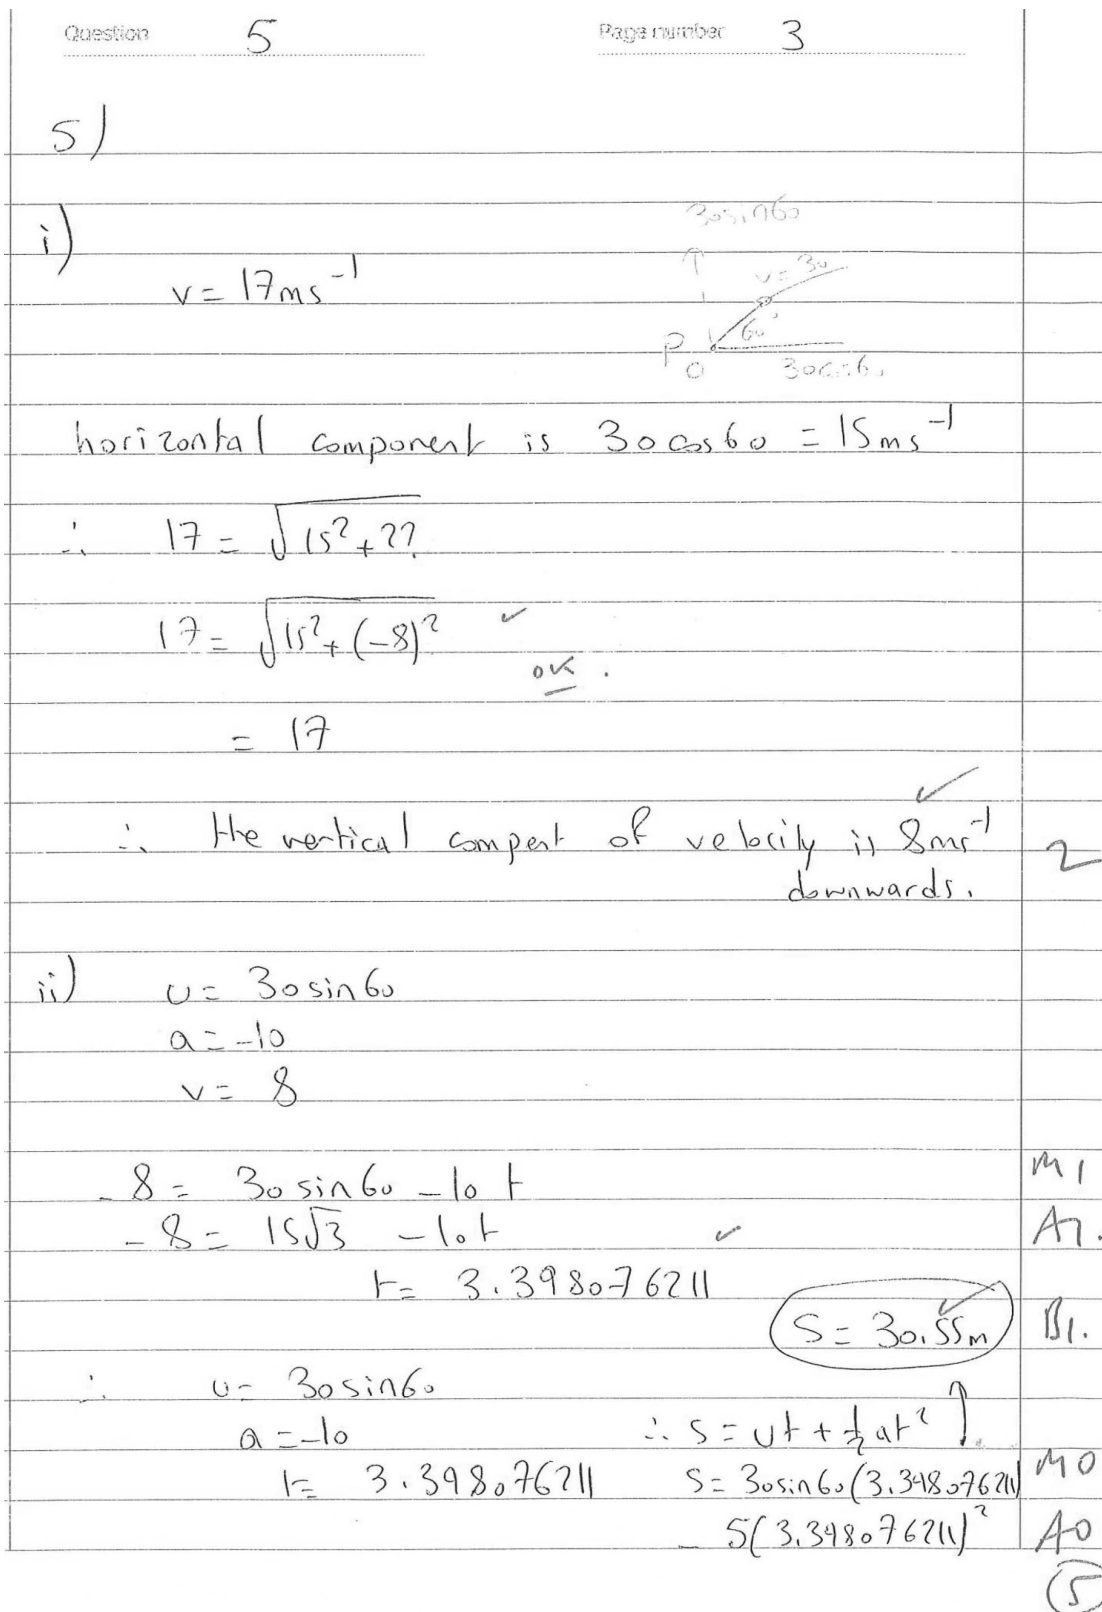 Question 5 Page number 3
5)
i)
30sin60
v = 17ms⁻¹
v = 30
60°
P
O
30cos60
horizontal component is 30cos60 = 15ms⁻¹
∴ 17 = √15² + ??
17 = √15² + (-8)² ✓
ok.
= 17
✓
∴ the vertical compent of velocity is 8ms⁻¹ 2
downwards.
ii) u = 30sin60
a = -10
v = 8
-8 = 30sin60 - 10t M1
-8 = 15√3 - 10t ✓ A1.
t = 3.398076211
S = 30.55m ✓ B1.
∴ u = 30sin60
a = -10 ∴ S = ut + ½at² ↑
t = 3.398076211 S = 30sin60(3.398076211) M0
- 5(3.398076211)² A0
5